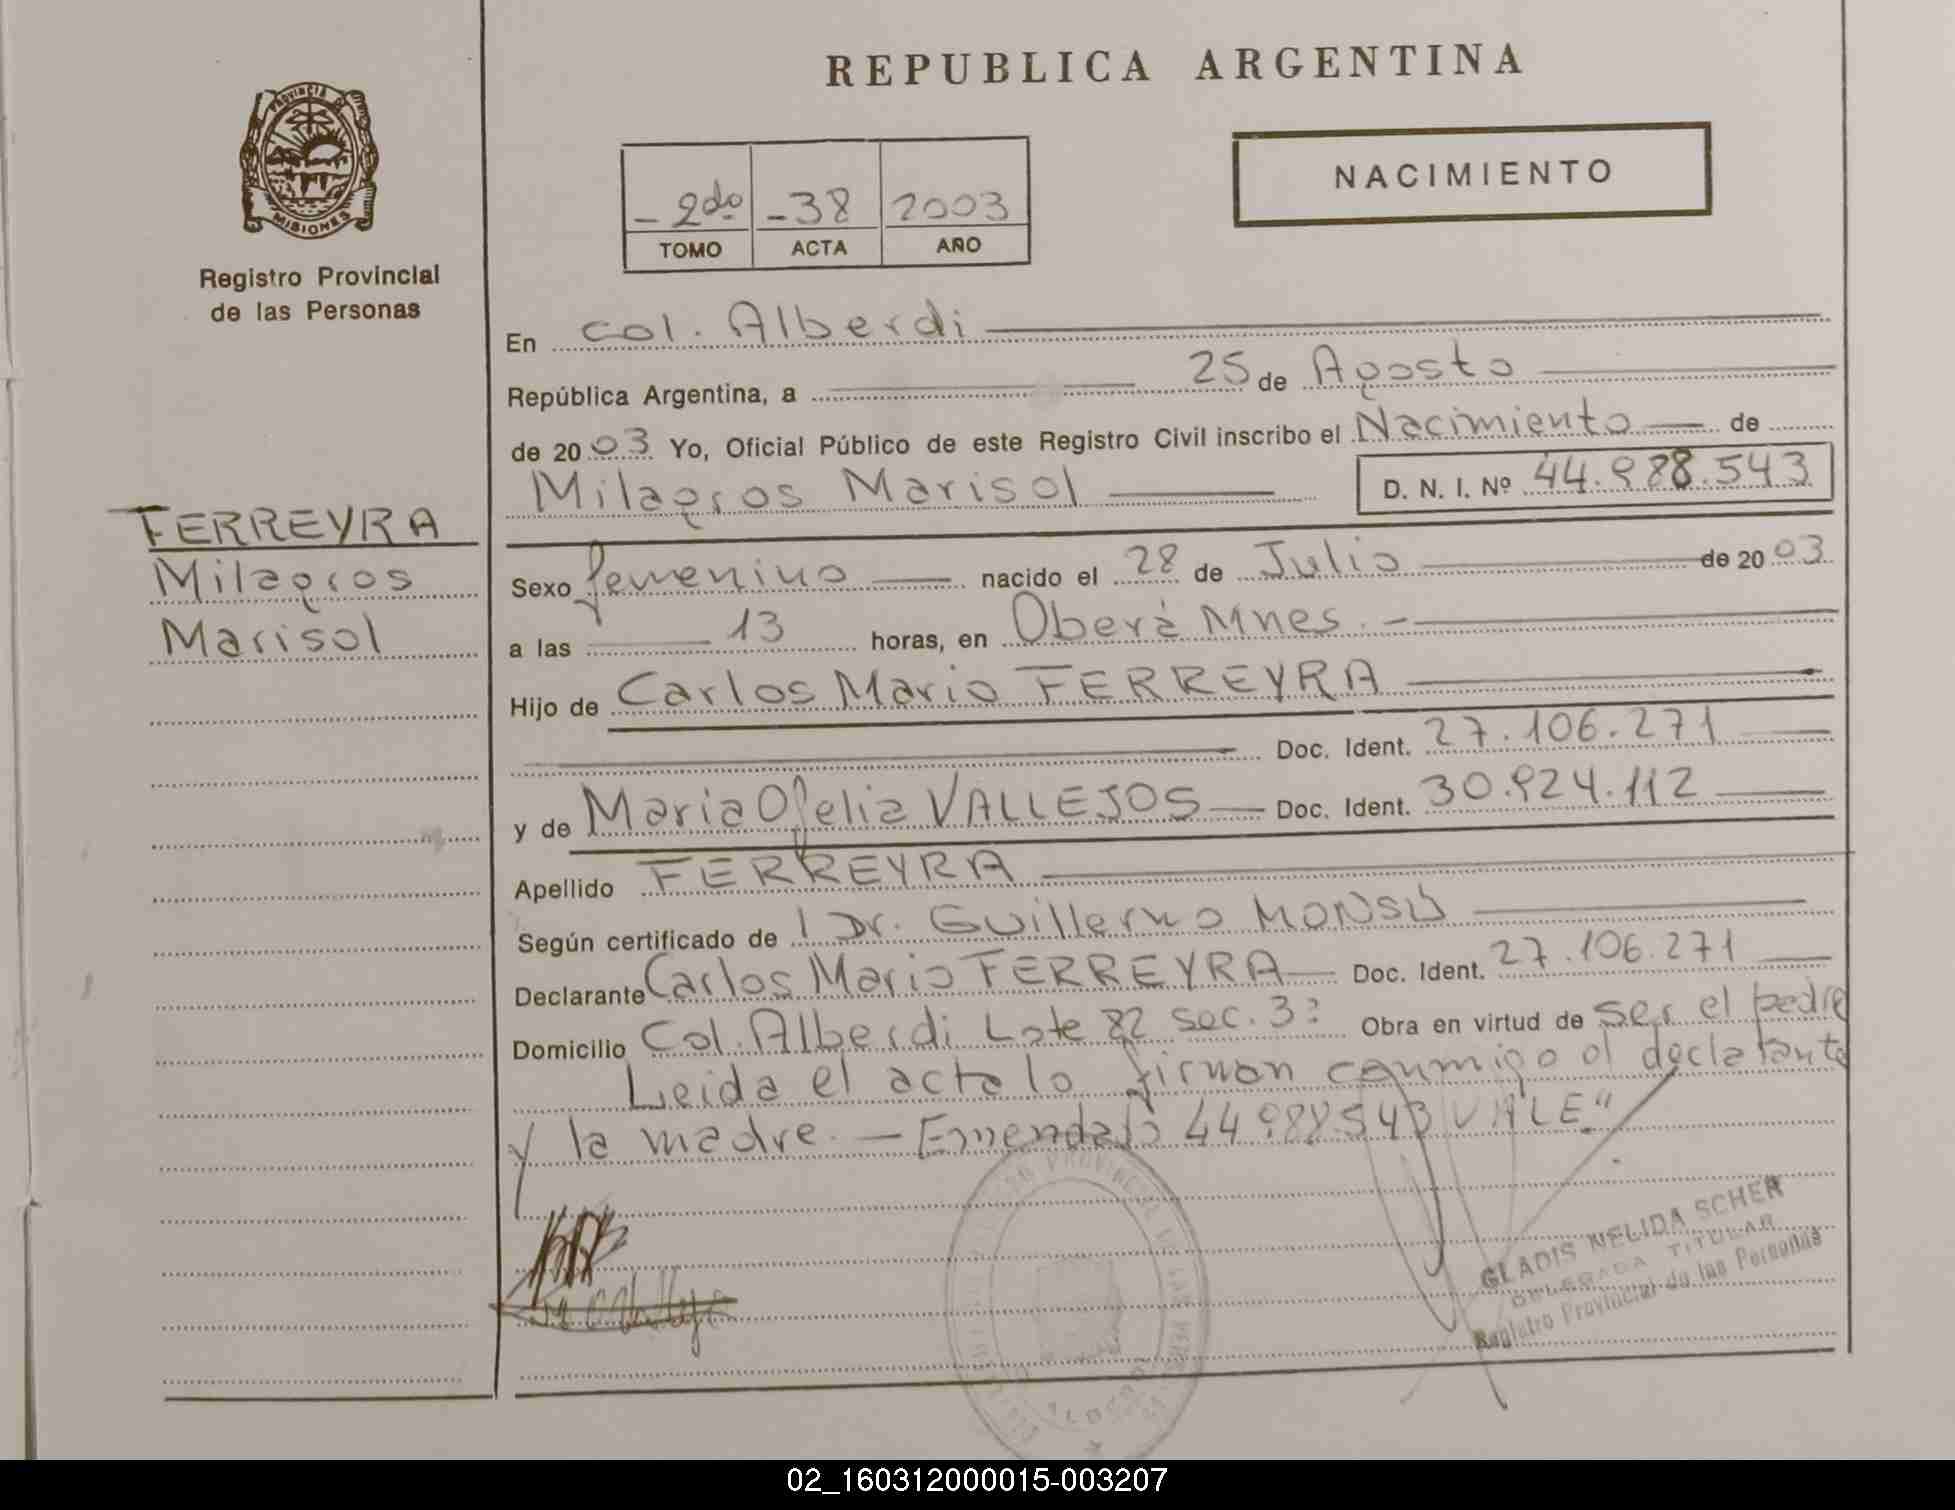 REPUBLICA ARGENTINA
PROVINCIA DE
MISIONES
Registro Provincial
de las Personas
- 2do - 38 2003
TOMO ACTA AÑO
NACIMIENTO
En col. Alberdi
República Argentina, a 25 de Agosto
de 2003 Yo, Oficial Público de este Registro Civil inscribo el Nacimiento de
Milagros Marisol D. N. I. Nº 44.988.543
FERREYRA
Milagros
Marisol
Sexo femenino nacido el 28 de Julio de 2003
a las 13 horas, en Oberá Mnes. -
Hijo de Carlos Mario FERREYRA
Doc. Ident. 27.106.271
y de Maria Ofelia VALLEJOS Doc. Ident. 30.924.112
Apellido FERREYRA
Según certificado de Dr. Guillermo
Declarante Carlos Mario FERREYRA Doc. Ident. 27.106.271
Domicilio Col. Alberdi Lote 82 sec. 3ª Obra en virtud de ser el padre
Leida el acta lo firman conmigo el declarante
y la madre. — Emendado 44988543 VALE"
GLADIS NELIDA SCHER
DELEGADA TITULAR
Registro Provincial de las Personas
02_160312000015-003207